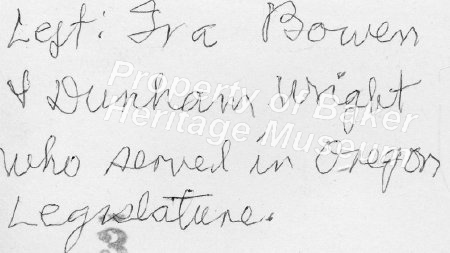 Left: Ira Bowen
& Dunham Wright
Property of Baker
Heritage Museum
who served in Oregon
Legislature.
3